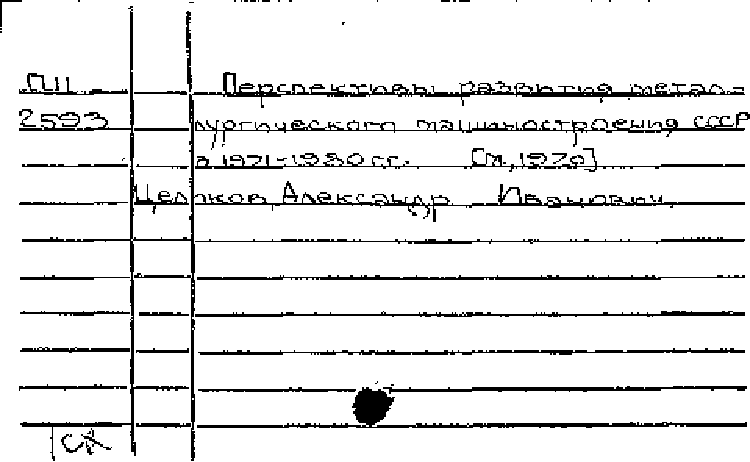 П11 Перспективы развития метал-
2593 лургического машиностроения СССР
на 1971-1980 гг. [М., 1970]
Целиков Александр Иванович
СК